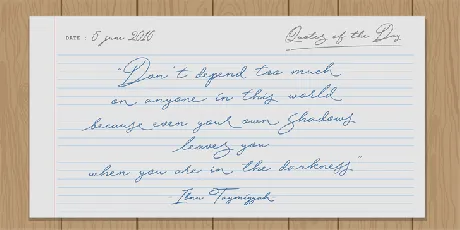 DATE : 5 june 2016
Quotes of the Day
"Don't depend too much
on anyone in this world
because even your own shadows
leaves you
when you are in the darkness"
- Ibnu Taymiyyah